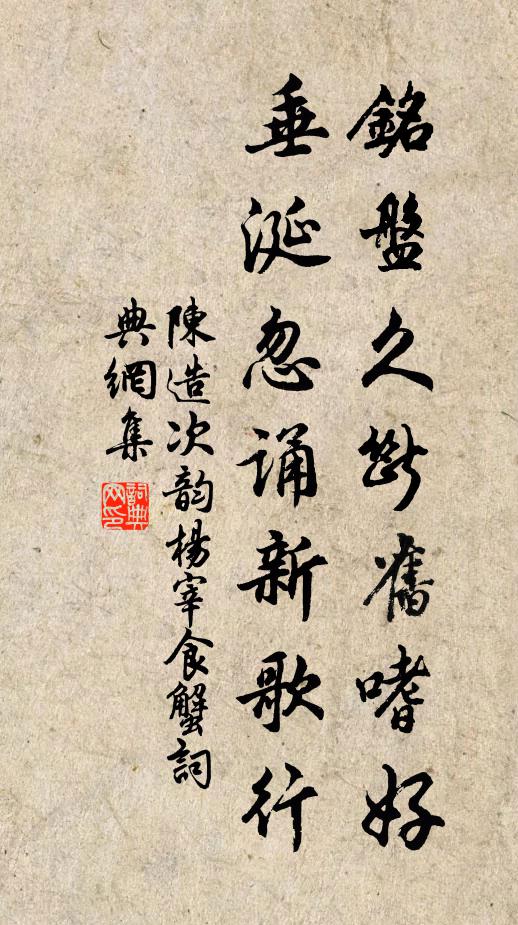 銘盤久斷舊嗜好
垂涎忽誦新歌行
陳造次韵楊宰食蟹詞
典網集
詞典網印